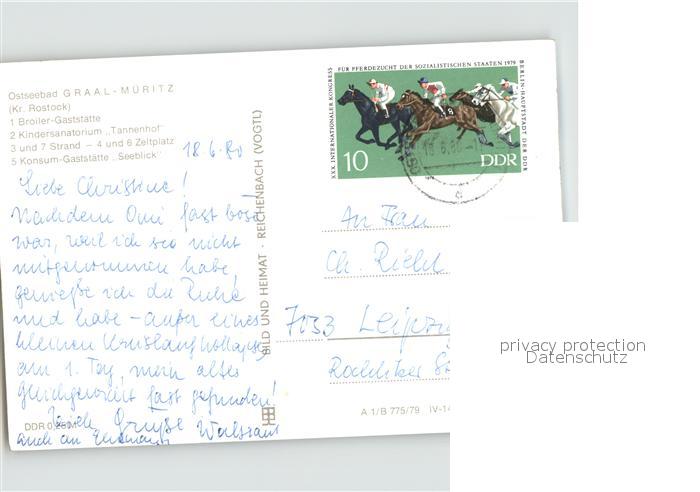 Ostseebad GRAAL-MÜRITZ
(Kr. Rostock)
1 Broiler-Gaststätte
2 Kindersanatorium „Tannenhof"
3 und 7 Strand – 4 und 6 Zeltplatz
5 Konsum-Gaststätte „Seeblick"
18.6.80
Liebe Christine!
Nachdem Omi fast böse
war, weil ich sie nicht
mitgenommen habe,
genieße ich die Ruhe
und habe – außer eines
kleinen Kreislaufkollapses
am 1. Tag, mein altes
Gleichgewicht fast gefunden!
Viele Grüße Waltraut
auch an
DDR 0,25 M
BILD UND HEIMAT · REICHENBACH (VOGTL)
XXX. INTERNATIONALER KONGRESS
FÜR PFERDEZUCHT DER SOZIALISTISCHEN STAATEN 1979
BERLIN-HAUPTSTADT DER DDR
10
DDR
An Frau
Ch. Riehl
7033 Leipzig
A 1/B 775/79 IV-14
privacy protection
Datenschutz